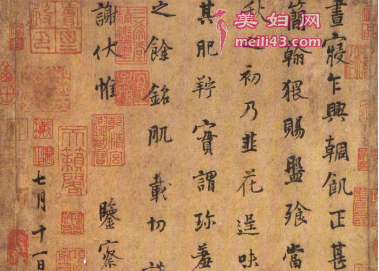 美妇网
meili43.com
晝寢乍興輖飢正甚
簡翰猥賜盤飧當
秋初乃韭花逞味
其肥羜實謂珍羞
之餘銘肌載切謹
謝伏惟 鑒察
七月十一日